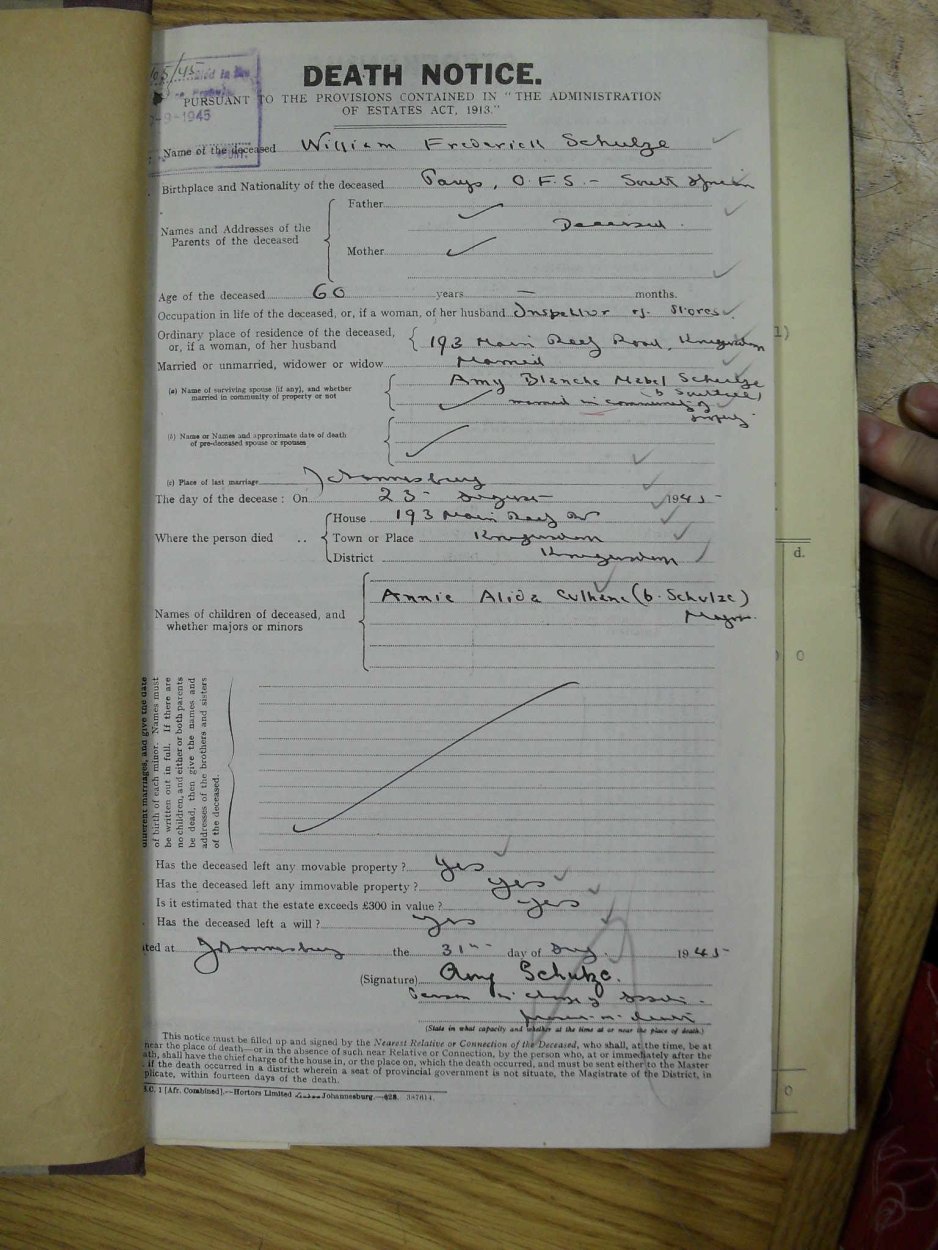 65/45
-9-1945
DEATH NOTICE.
PURSUANT TO THE PROVISIONS CONTAINED IN "THE ADMINISTRATION
OF ESTATES ACT, 1913."
Name of the deceased William Frederick Schulze
Birthplace and Nationality of the deceased Parys, O.F.S. - South African
Father
Names and Addresses of the
Parents of the deceased
Deceased.
Mother
Age of the deceased 60 years — months.
Occupation in life of the deceased, or, if a woman, of her husband Inspector of Stores.
Ordinary place of residence of the deceased,
or, if a woman, of her husband
193 Main Reef Road, Krugersdorp
Married or unmarried, widower or widow Married
(a) Name of surviving spouse (if any), and whether
married in community of property or not
Amy Blanche Mabel Schulze
(b
married in community of
property.
(b) Name or Names and approximate date of death
of pre-deceased spouse or spouses
(c) Place of last marriage Johannesburg
The day of the decease: On 23 August 1945
Where the person died ..
House 193 Main Reef Rd
Town or Place Krugersdorp
District Krugersdorp
Names of children of deceased, and
whether majors or minors
Annie Alida Culhane (b. Schulze)
Major.
different marriages, and give the date
of birth of each minor. Names must
be written out in full. If there are
no children, and either or both parents
be dead, then give the names and
addresses of the brothers and sisters
of the deceased.
Has the deceased left any movable property? Yes
Has the deceased left any immovable property? Yes
Is it estimated that the estate exceeds £300 in value? Yes
Has the deceased left a will? Yes
ted at Johannesburg the 31st day of Aug. 1945
(Signature) Amy Schulze.
Person in charge of
present at death
(State in what capacity and whether at the time at or near the place of death.)
This notice must be filled up and signed by the Nearest Relative or Connection of the Deceased, who shall, at the time, be at
near the place of death—or in the absence of such near Relative or Connection, by the person who, at or immediately after the
ath, shall have the chief charge of the house in, or the place on, which the death occurred, and must be sent either to the Master
, if the death occurred in a district wherein a seat of provincial government is not situate, the Magistrate of the District, in
plicate, within fourteen days of the death.
.C. 1 [Afr. Combined].—Hortors Limited Johannesburg.—428. 387614.
1)
d.
0
0